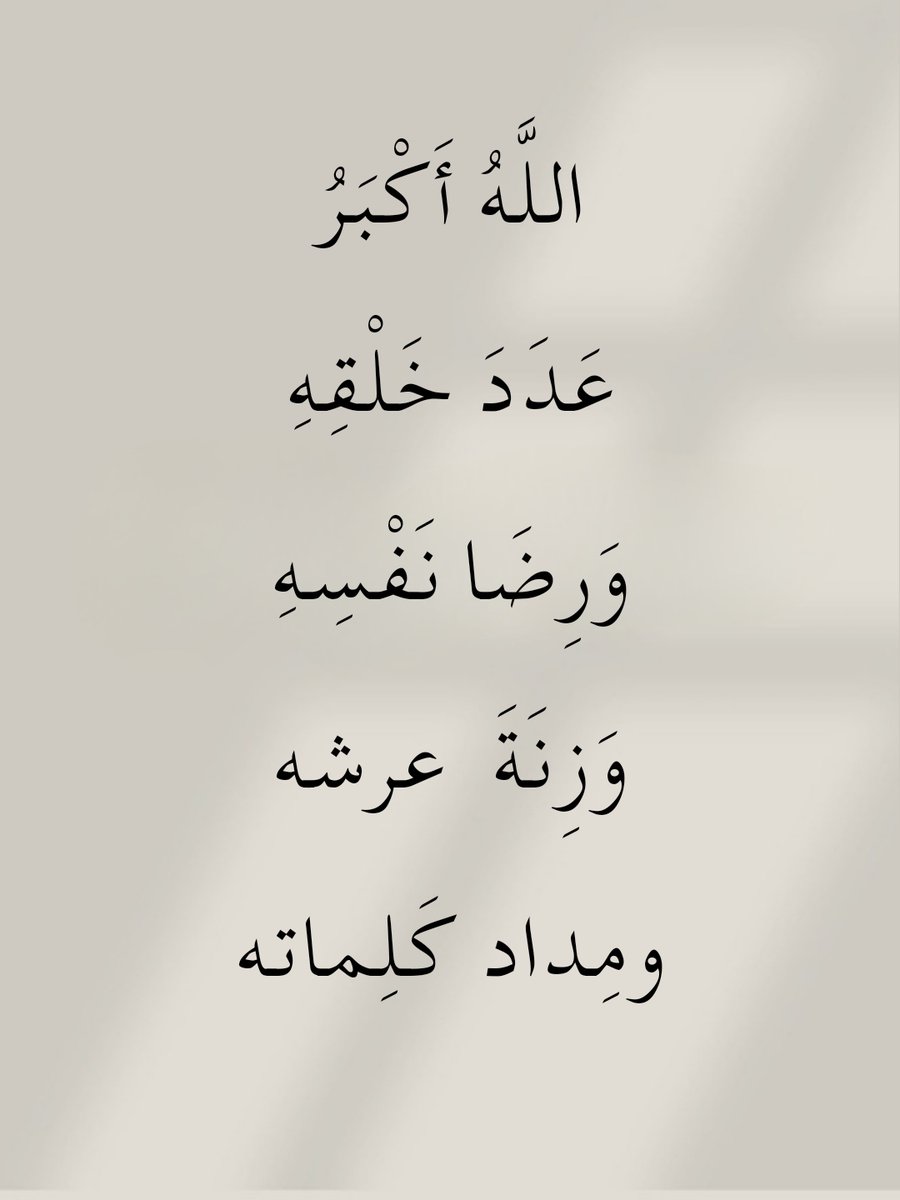 اللَّهُ أَكْبَرُ
عَدَدَ خَلْقِهِ
وَرِضَا نَفْسِهِ
وَزِنَةَ عرشه
ومِداد كَلِماته